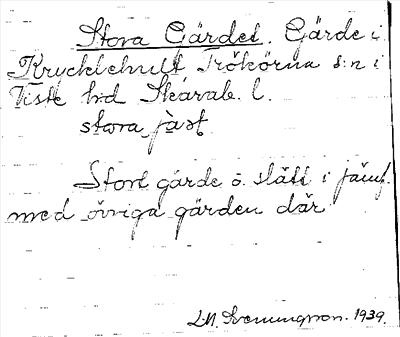 Stora Gärdet. Gärde i
Krycklehult Trökörna s:n i
Viste hd Skarab. l.
stora jäst
Stort gärde o. slätt i jämf.
med övriga gärden där
L.N. Svenungsson. 1939.